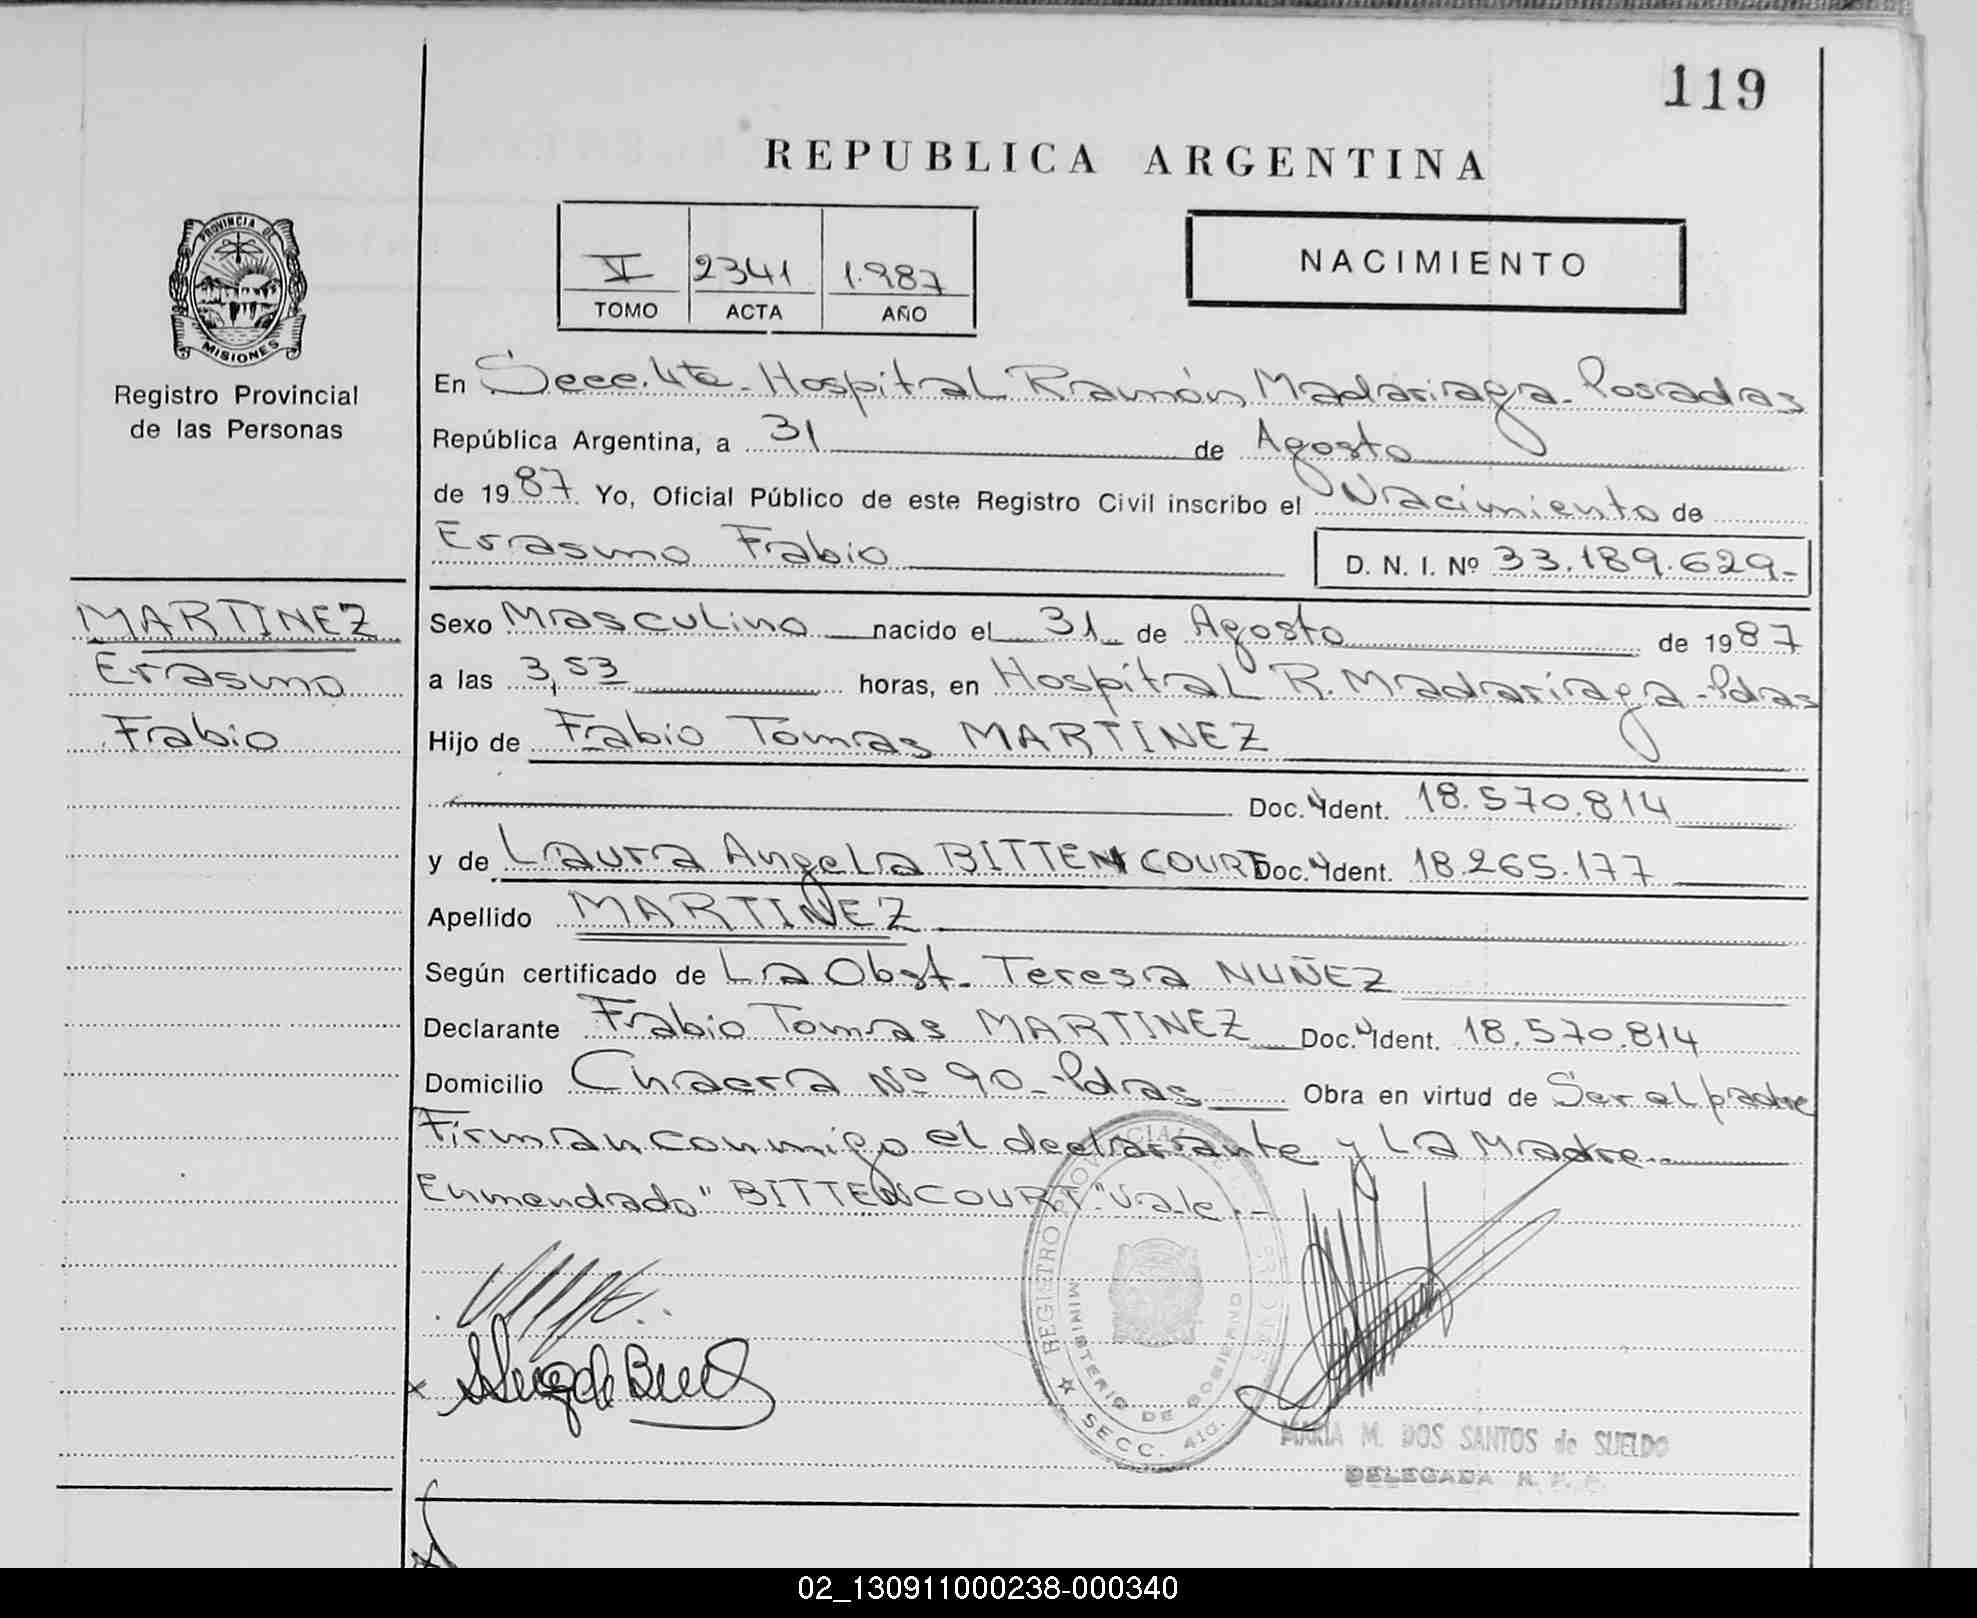 119
REPUBLICA ARGENTINA
V 2341 1.987
TOMO ACTA AÑO
NACIMIENTO
PROVINCIA DE
MISIONES
Registro Provincial
de las Personas
En Secc. 4ta - Hospital Ramón Madariaga - Posadas
República Argentina, a 31 de Agosto
de 1987 Yo, Oficial Público de este Registro Civil inscribo el Nacimiento de
Erasmo Fabio D. N. I. Nº 33.189.629-
MARTINEZ
Erasmo
Fabio
Sexo Masculino nacido el 31 de Agosto de 1987
a las 3,53 horas, en Hospital R. Madariaga - Pdas
Hijo de Fabio Tomas MARTINEZ
Doc. Ident. 18.570.814
y de Laura Angela BITTENCOURT Doc. Ident. 18.265.177
Apellido MARTINEZ
Según certificado de La Obst. Teresa NUÑEZ
Declarante Fabio Tomas MARTINEZ Doc. Ident. 18.570.814
Domicilio Chacra Nº 90 - Pdas Obra en virtud de Ser el padre
Firman conmigo el declarante y La Madre.
Enmendado "BITTENCOURT" Vale.-
REGISTRO PROVINCIAL
MINISTERIO DE GOBIERNO
SECC. 4ta.
MARIA M. DOS SANTOS de SUELDO
DELEGADA R. P. P.
02_130911000238-000340